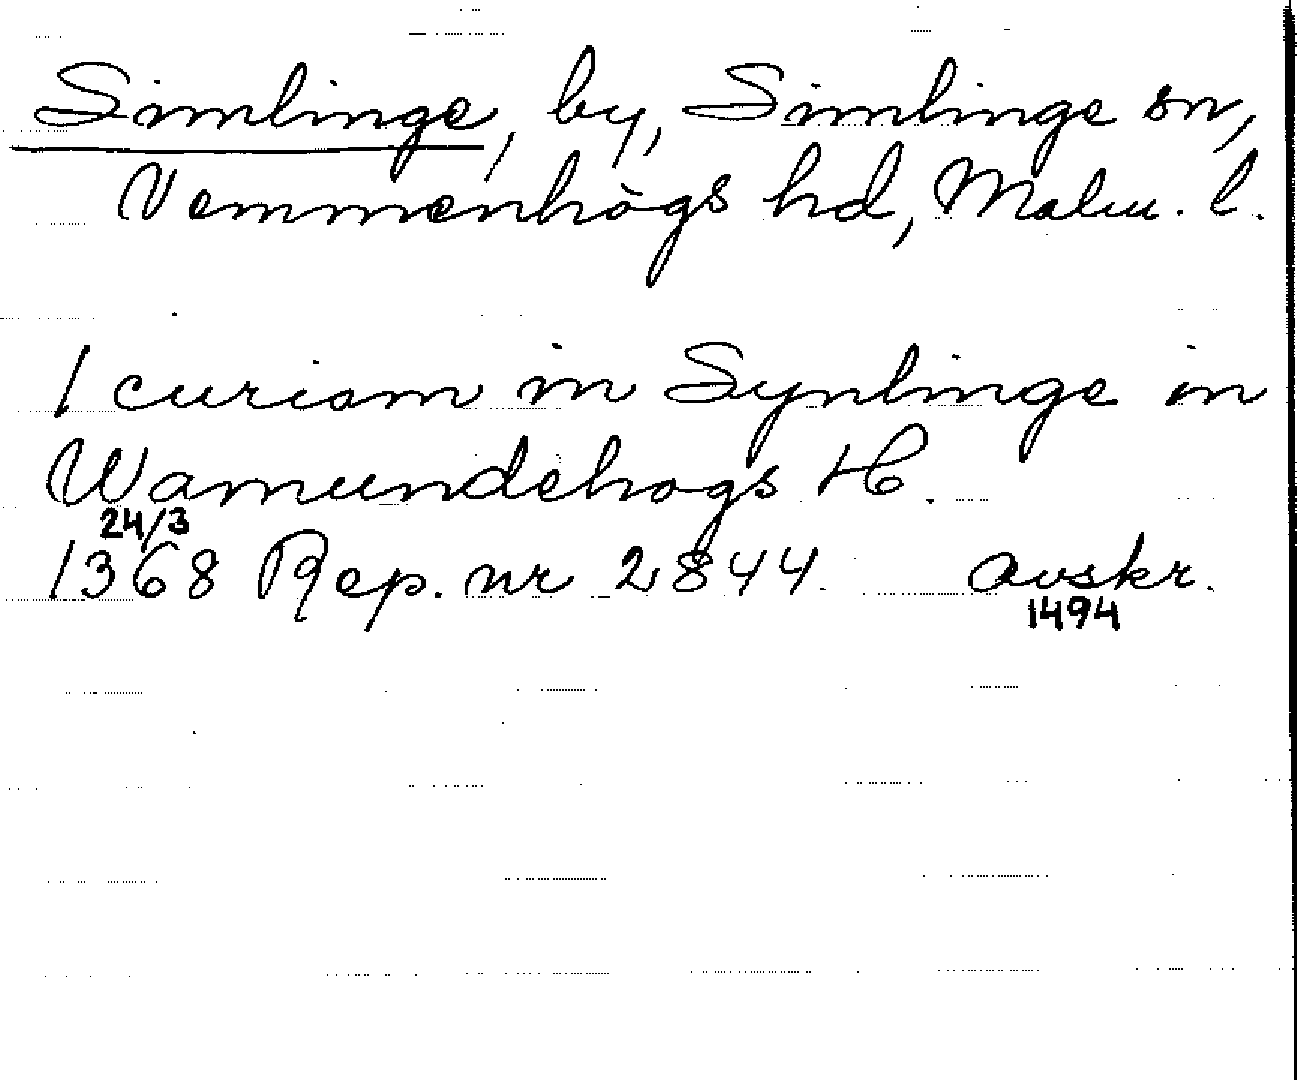 Simlinge, by, Simlinge sn,
Vemmenhögs hd, Malm. l.
1 curiam in Synlinge in
Wamundehogs H.
24/3
1368 Rep. nr 2844 avskr.
1494